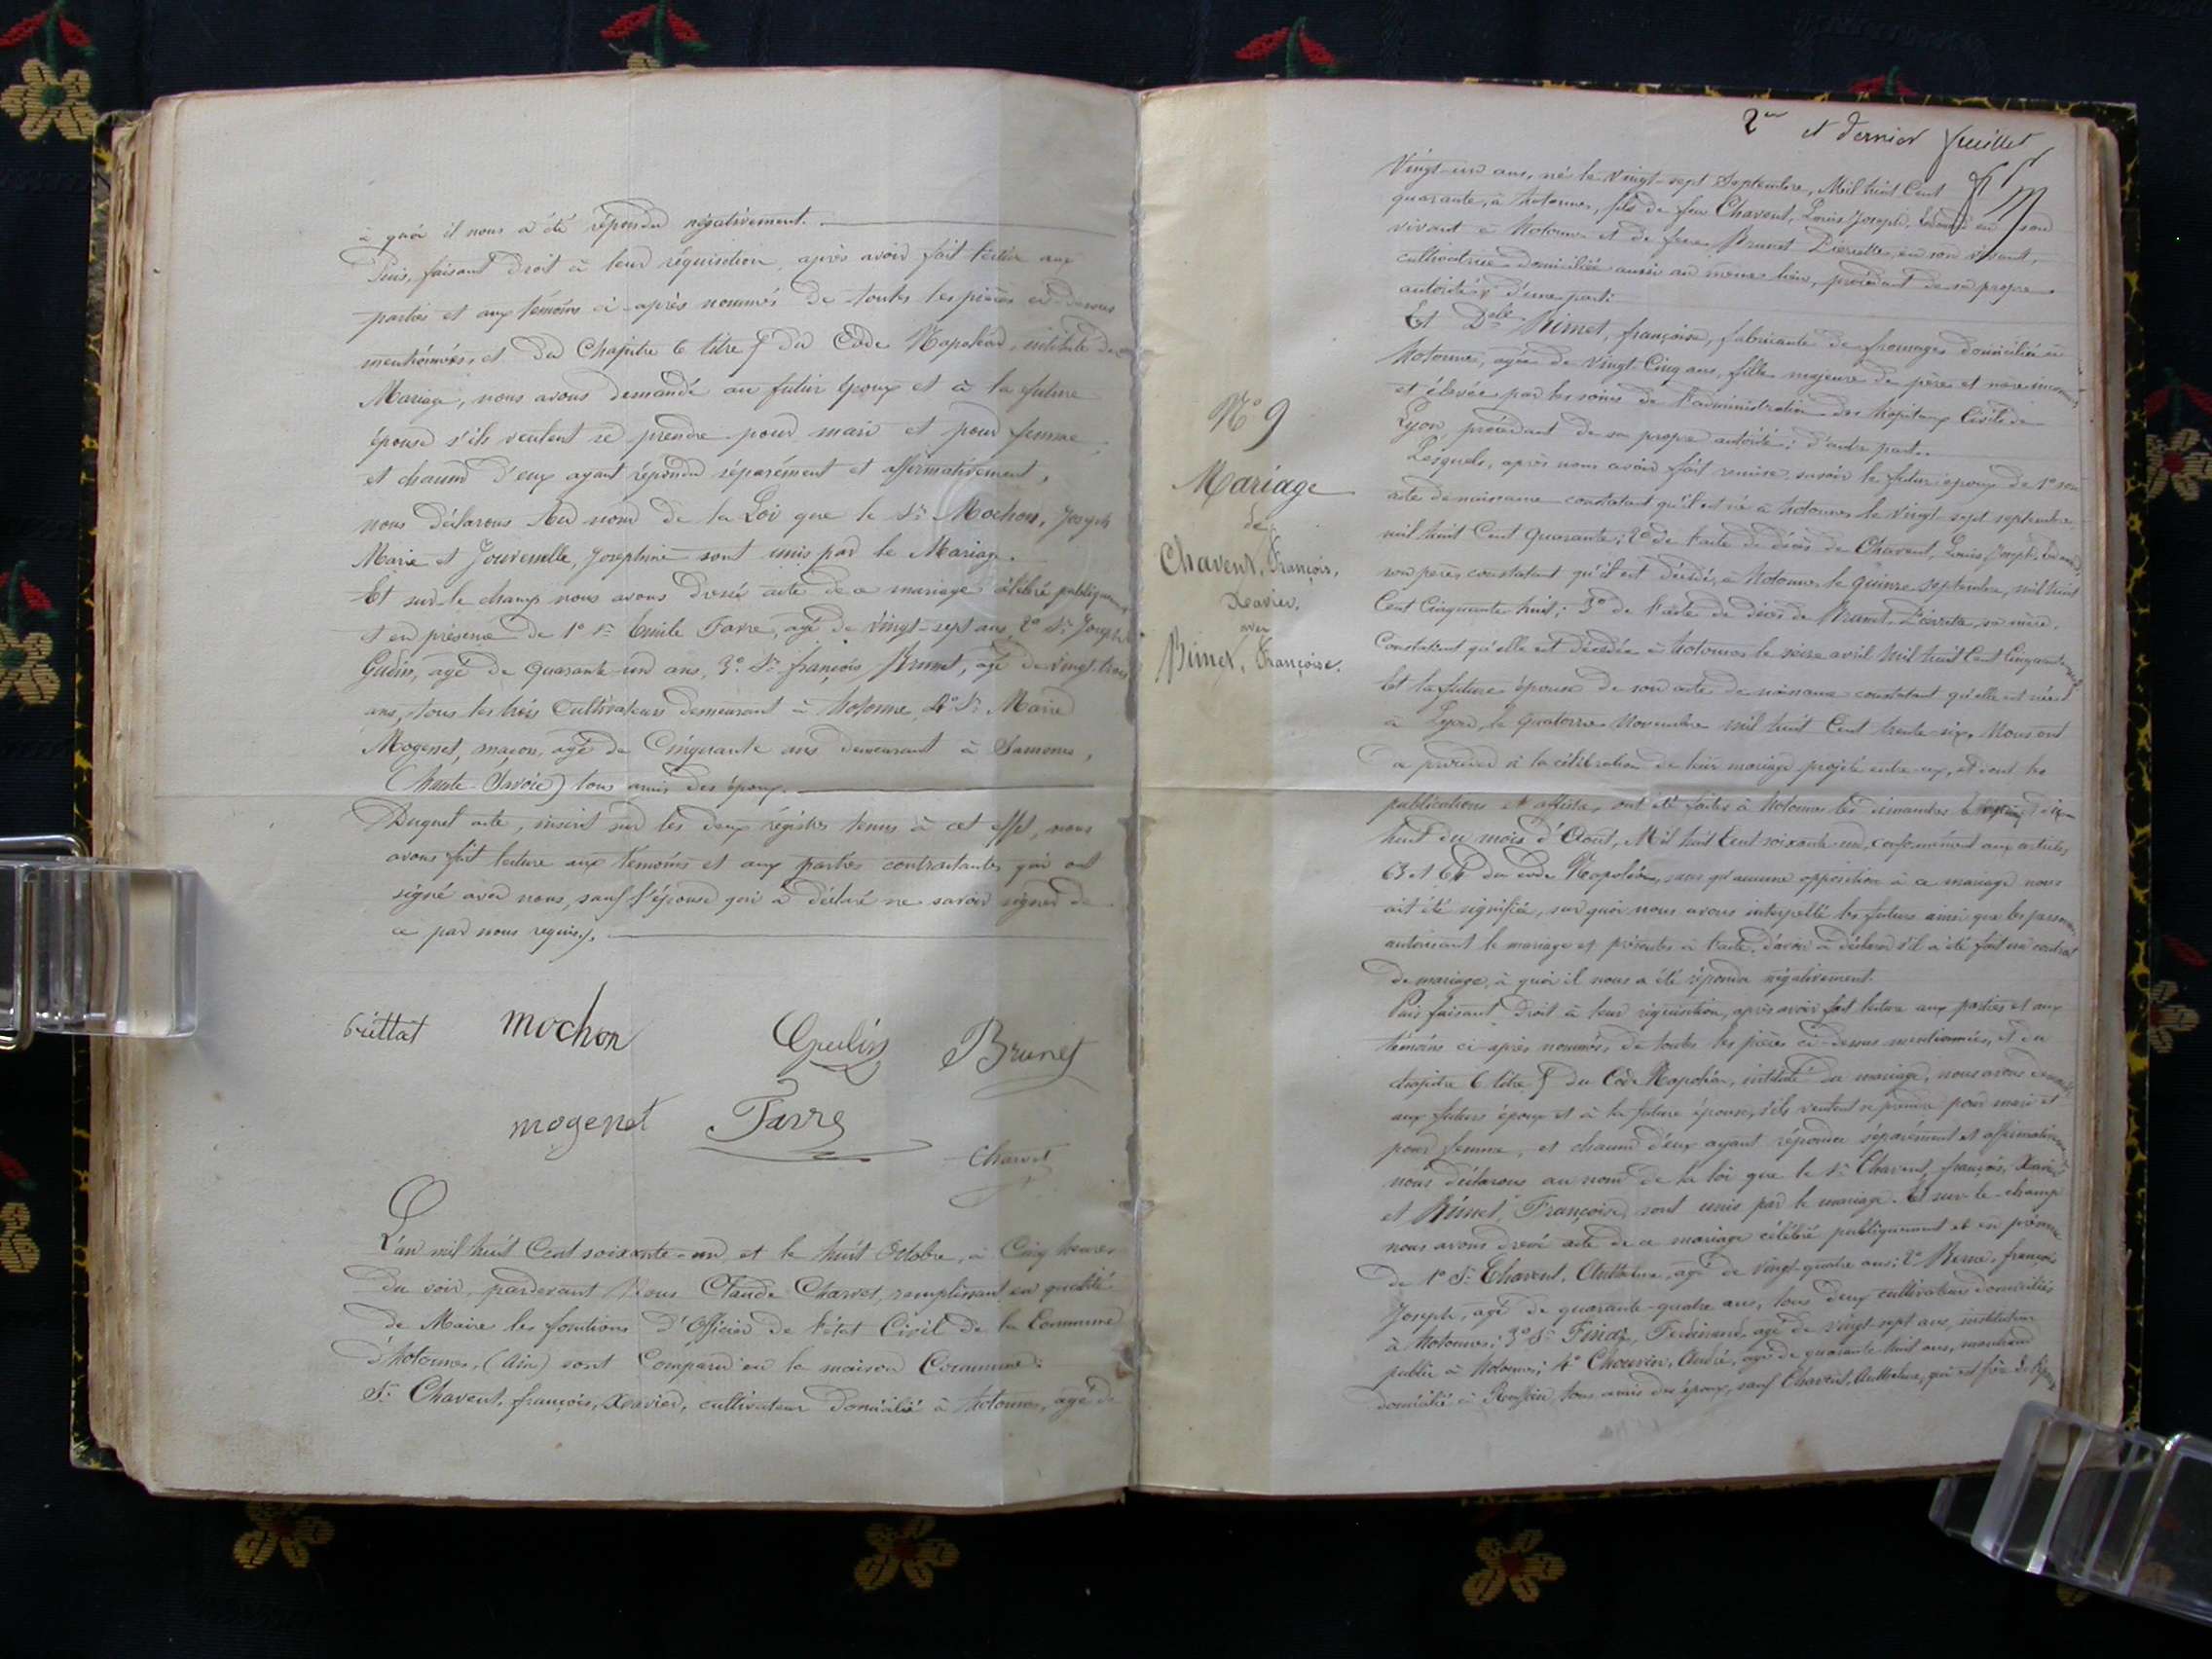 à quoi il nous a été répondu négativement.
Puis, faisant droit à leur réquisition, après avoir fait lecture aux
parties et aux témoins ci-après nommés de toutes les pièces ci-dessus
mentionnées, et du Chapitre 6 titre 5 du Code Napoléon, intitulé du
Mariage, nous avons demandé au futur époux et à la future
épouse s'ils veulent se prendre pour mari et pour femme,
et chacun d'eux ayant répondu séparément et affirmativement,
nous déclarons Au nom de la Loi que le Sr Mochon, Joseph
Marie et Jouvenelle, Josephine sont unis par le Mariage.
Et sur-le-champ nous avons dressé acte de ce mariage célébré publiquement
et en présence de 1° Sr Emile Favre, agé de vingt-sept ans, 2° Sr Joseph
Gudin, agé de quarante-un ans, 3° Sr françois Brunet, agé de vingt-trois
ans, tous les trois Cultivateurs demeurant à hotonne, 4° Sr Marie
Mogenet, maçon, agé de Cinquante ans demeurant à Samoens,
(haute-Savoie) tous amis des époux.
Duquel acte, inscrit sur les deux régistres tenus à cet effet, nous
avons fait lecture aux témoins et aux parties contractantes qui ont
signé avec nous, sauf l'épouse qui a déclaré ne savoir signer de
ce par nous requis.
mochon Brunet
mogenet Favre
Charvet
L'an mil huit Cent soixante-un et le huit Octobre, à Cinq heures
du soir, pardevant Nous Claude Charvet, remplissant en qualité
de Maire les fonctions d'Officier de l'état Civil de la Commune
d'hotonnes, (Ain) sont Comparu en la maison Commune:
Sr Chavent, françois, Xavier, cultivateur domicilié à hotonnes, agé de
2em et dernier feuillet
Vingt-un ans, né le vingt-sept Septembre, Mil huit Cent
quarante, à hotonnes, fils de feu Chavent, Louis Joseph, en son
vivant à hotonnes et de feue Brunet en son vivant,
cultivatrice domiciliée aussi au même lieu, procédant de sa propre
autorité, d'une part.
Et Delle Rimet, françoise, fabricante de fromages domiciliée à
hotonne, agée de vingt-Cinq ans, fille majeure de père et mère inconnus,
et élevée par les soins de l'administration des hopitaux Civils de
Lyon, procédant de sa propre autorité; d'autre part.
Lesquels, après nous avoir fait remise, savoir le futur époux de 1° son
acte de naissance constatant qu'il est né à hotonnes le vingt-sept septembre
mil huit Cent quarante; 2° de l'acte de décès de Chavent, Louis, Joseph,
son père, constatant qu'il est décédé, à hotonnes le quinze Septembre, mil huit
Cent Cinquante huit; 3° de l'acte de décès de Brunet sa mère,
Constatant qu'elle est décédée à hotonnes le avril Mil huit Cent Cinquante
Et la future épouse de son acte de naissance constatant qu'elle est née
à Lyon, le quatorze Novembre mil huit Cent trente-six. Nous ont
procéder à la célébration de leur mariage projeté entre eux, et dont les
publications et affiches, ont été faites à hotonnes les dimanches dix
huit du mois d'Aout, Mil huit Cent soixante-un, conformément aux articles
63 et 64 du code Napoléon, sans qu'aucune opposition à ce mariage nous
ait été signifiée, sur quoi nous avons interpellé les futurs ainsi que les personnes
autorisant le mariage et présentes à l'acte, d'avoir à déclarer s'il a été fait un contrat
de mariage, à quoi il nous a été répondu négativement.
Puis faisant droit à leur réquisition, après avoir fait lecture aux parties et aux
témoins ci-après nommés, de toutes les pièces ci-dessus mentionnées, et du
chapitre 6 titre 5 du Code Napoléon, intitulé du mariage, nous avons demandé
aux futurs époux et à la future épouse, s'ils veulent se prendre pour mari et
pour femme, et chacun d'eux ayant répondu séparément et affirmativement
nous déclarons au nom de la loi que le Sr Chavent, françois, Xavier
et Rimet, Françoise, sont unis par le mariage. Et sur-le-champ
nous avons dressé acte de ce mariage célébré publiquement et en présence
de 1° Sr Chavent, Anthelme, agé de vingt-quatre ans; 2° françois
Joseph, agé de quarante-quatre ans, tous deux cultivateurs domiciliés
à hotonnes; 3° Sr Finaz, Ferdinand, agé de vingt-sept ans, instituteur
public à hotonnes; 4° Chouvin, André, agé de quarante huit ans,
domicilié à tous amis des époux, sauf Chavent, Anthelme, qui est frère de l'époux
N° 9
Mariage
de
Chavent, François,
Xavier,
avec
Rimet, Françoise.